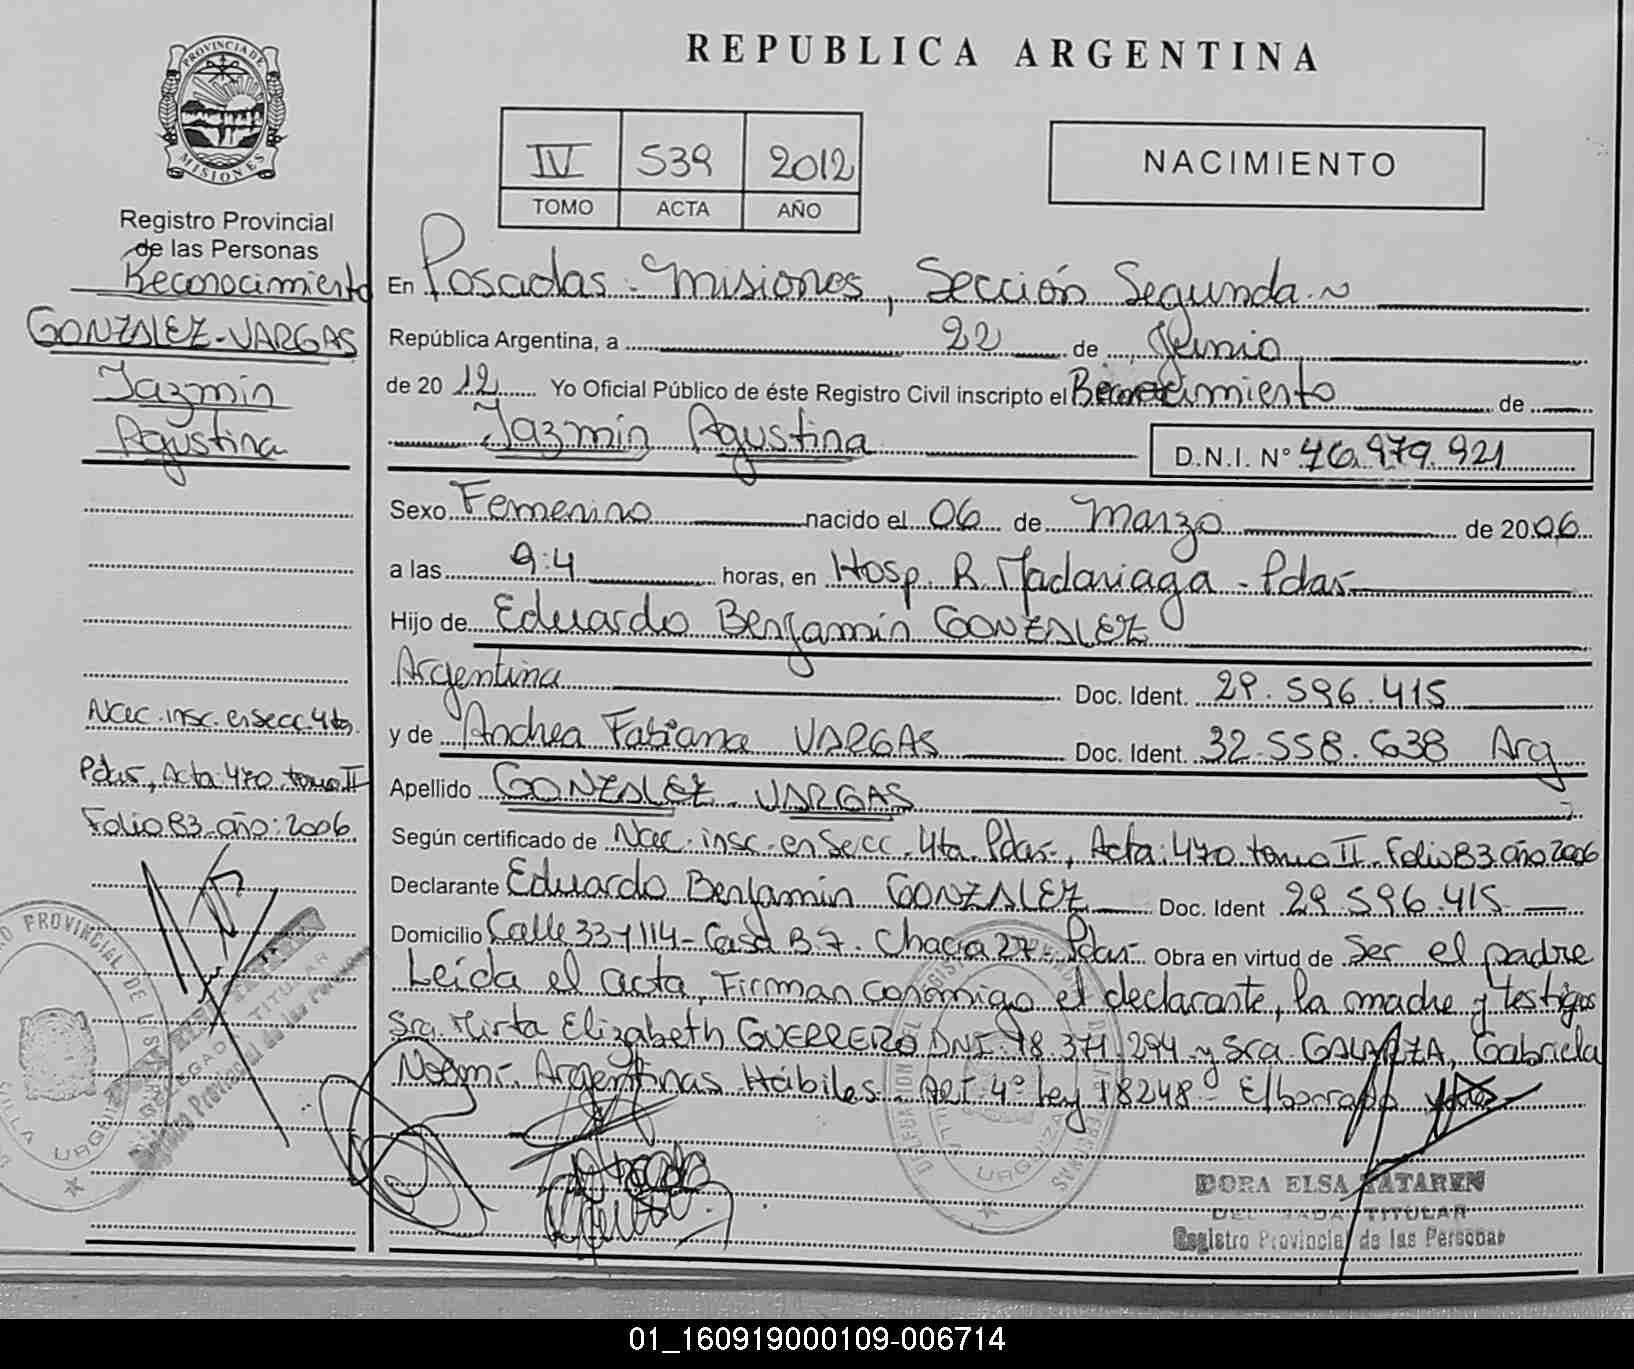 REPUBLICA ARGENTINA
PROVINCIA DE
MISIONES
Registro Provincial
de las Personas
Reconocimiento
GONZALEZ-VARGAS
Jazmín
Agustina
Nac. insc. en secc 4ta.
Pdas, Acta 470 tomo II
Folio 83 año: 2006
IV 539 2012
TOMO ACTA AÑO
NACIMIENTO
En Posadas - Misiones, Sección Segunda
República Argentina, a 22 de Junio
de 2012 Yo Oficial Público de éste Registro Civil inscripto el Reconocimiento de
Jazmín Agustina D.N.I. N° 46.979.921
Sexo Femenino nacido el 06 de Marzo de 2006
a las 9:4 horas, en Hosp. R. Madariaga - Pdas
Hijo de Eduardo Benjamín GONZALEZ
Argentina Doc. Ident. 29.596.415
y de Andrea Fabiana VARGAS Doc. Ident. 32.558.638 Arg
Apellido GONZALEZ - VARGAS
Según certificado de Nac. insc. en Secc. 4ta. Pdas, Acta: 470 tomo II. Folio 83 año 2006
Declarante Eduardo Benjamín GONZALEZ Doc. Ident 29.596.415
Domicilio Calle 33 y 114 - Casa B 7. Chacra 27 - Pdas Obra en virtud de Ser el padre
Leída el acta, Firman conmigo el declarante, la madre y testigos
Sra. Mirta Elizabeth GUERRERO DNI 18.371.294 y Sra. Gabriela
Noemí - Argentinas Hábiles - ART. 4° Ley 18248 - E/borrado
DORA ELSA
TITULAR
Registro Provincial de las Personas
01_160919000109-006714